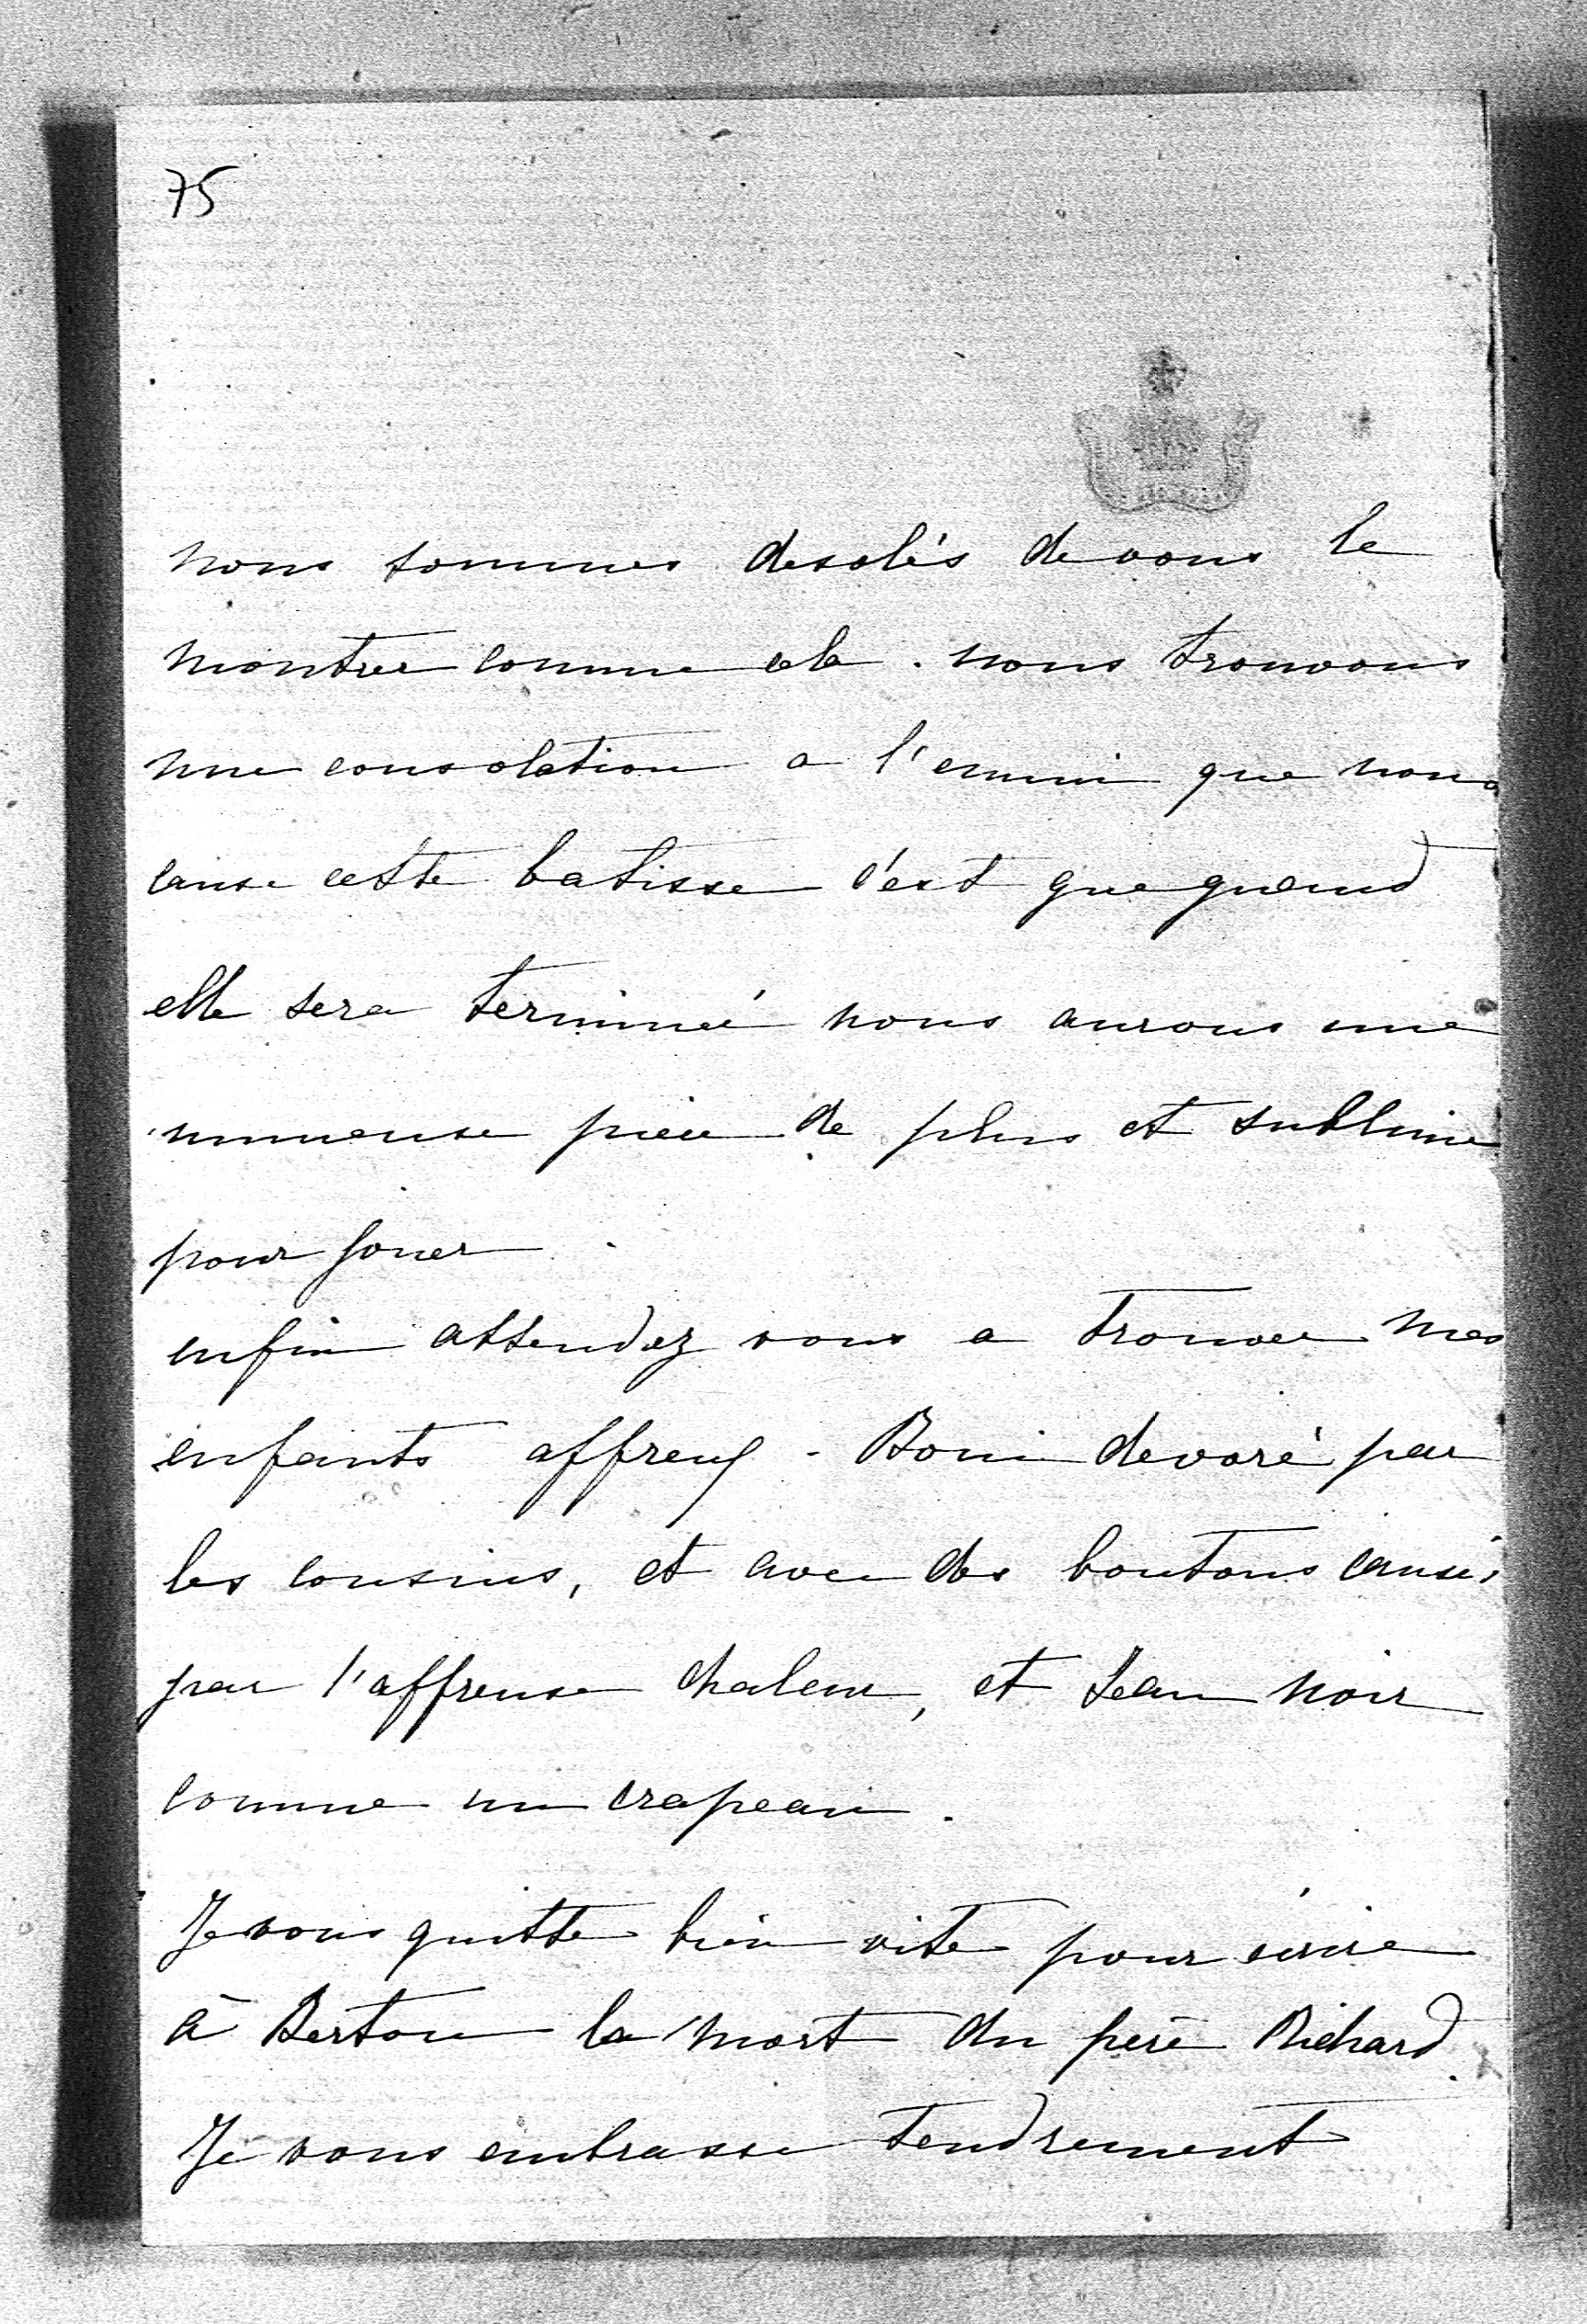 75
nous sommes desolés de vous le
montrer comme cela . nous trouvons
une consolation a l'ennui que nous
cause cette batisse c'est que quand
elle sera terminée nous aurons une
immense piece de plus et sublime
pour jouer .
enfin attendez vous a trouver mes
enfants affreux - Boni devoré par
les cousins, et avec des boutons causés
par l'affreuse chaleur, et Jean noir
comme un crapeau .
Je vous quitte bien vite pour écrire
à Berton la mort du père Richard.
Je vous embrasse tendrement